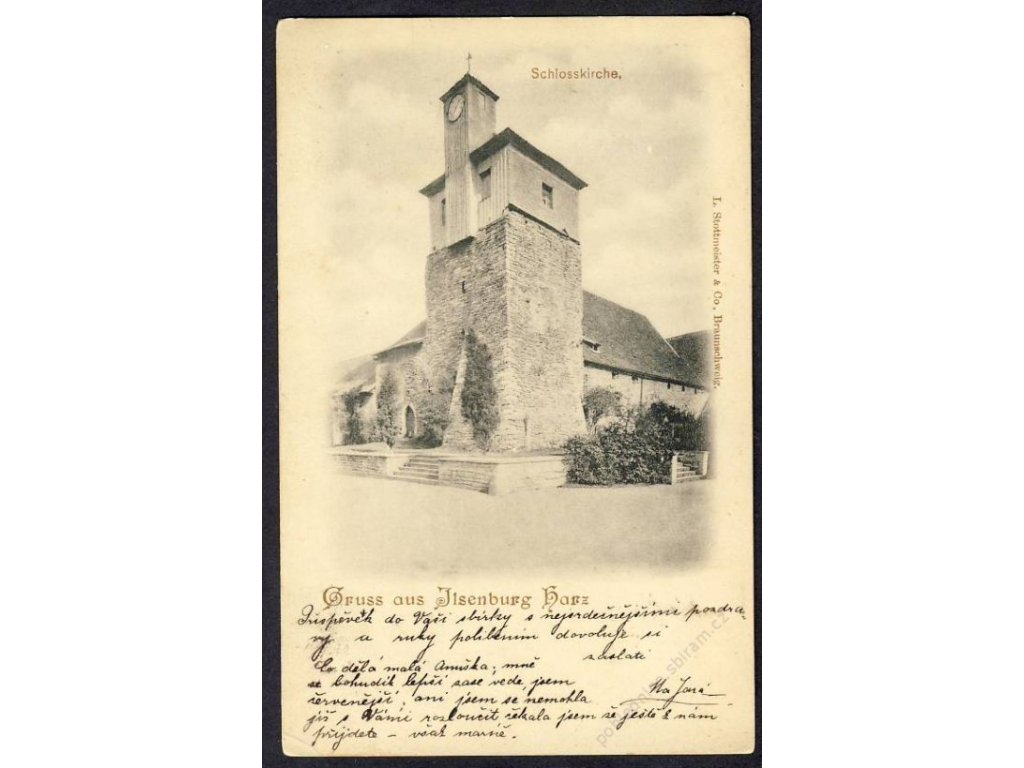 Schlosskirche.
L. Stottmeister & Co, Braunschweig.
Gruss aus Ilsenburg Harz
Příspěvěk do Vaší sbírky s nejsrdečnějšími pozdra-
vy a ruky políbením dovoluje si
zaslati
Co dělá malá Anuška; mně
se bohudík lepší zase vede, jsem
červenější, ani jsem se nemohla
již s Vámi rozloučit čekala jsem že ještě k nám
přijdete – však marně.
sbiram.cz